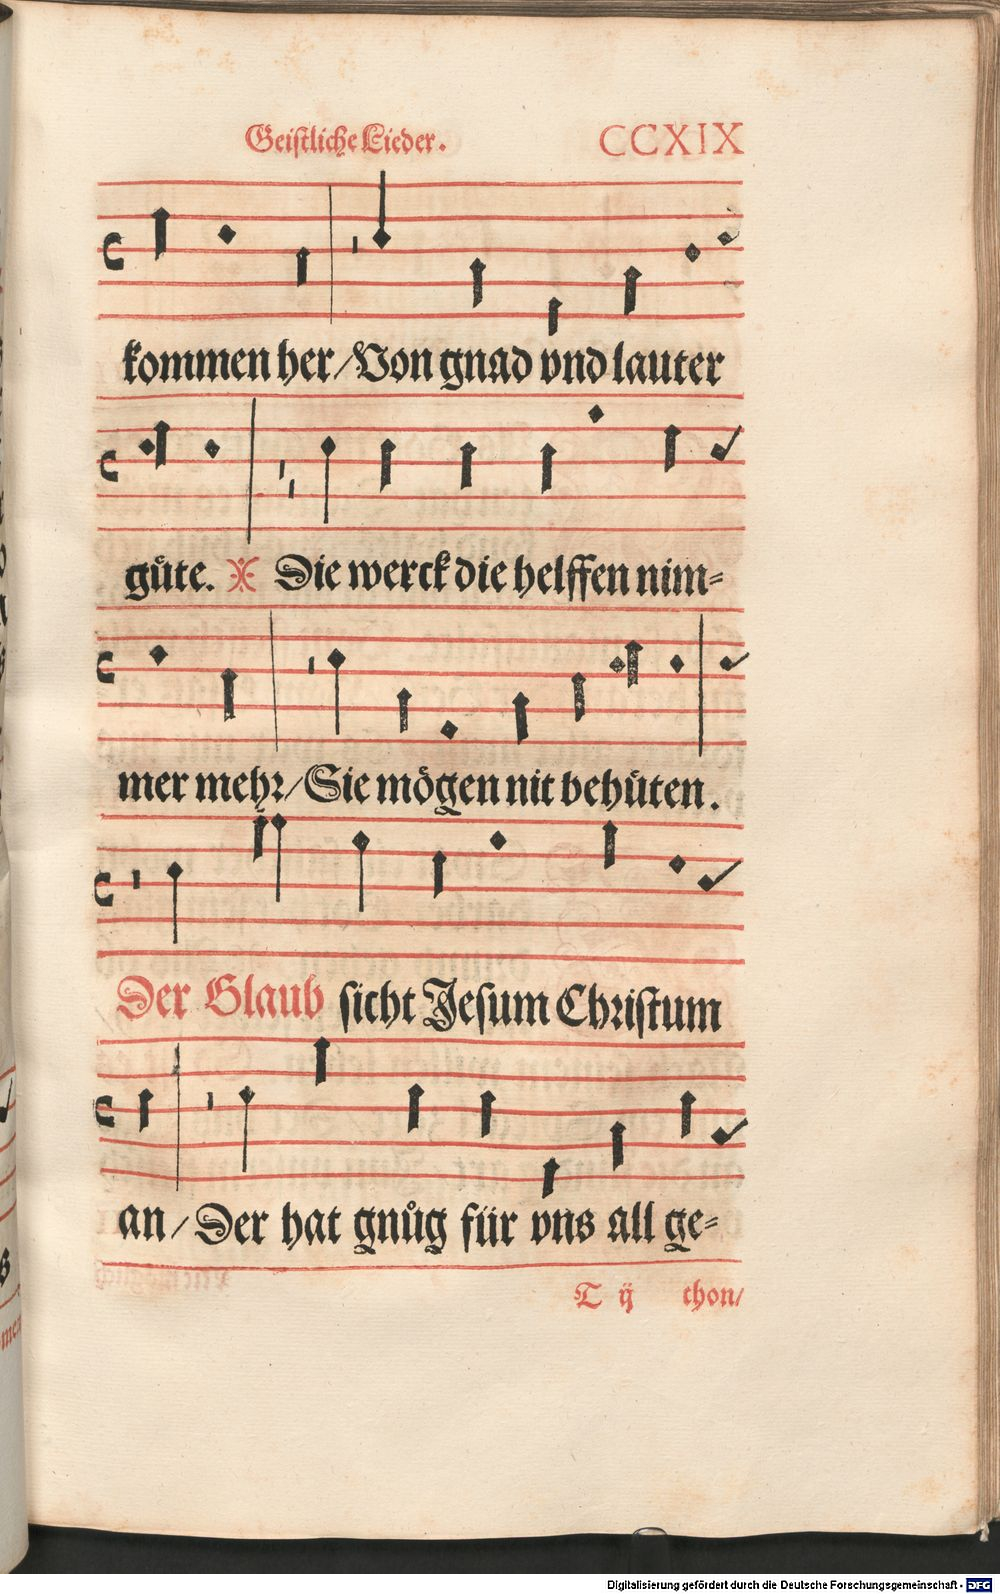 Geistliche Lieder. CCXIX
kommen her / Von gnad vnd lauter
guͤte. Die werck die helffen nim⸗
mer mehr / Sie moͤgen nit behuͤten.
Der Glaub sicht Jesum Christum
an / Der hat gnuͦg für vns all ge⸗
T ij thon /
Digitalisierung gefördert durch die Deutsche Forschungsgemeinschaft - DFG